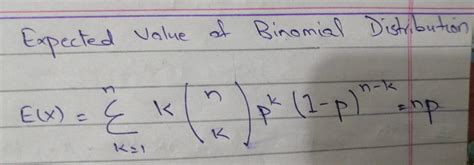 Expected Value of Binomial Distribution
E(X) = \sum_{k=1}^{n} k \binom{n}{k} p^k (1-p)^{n-k} = np